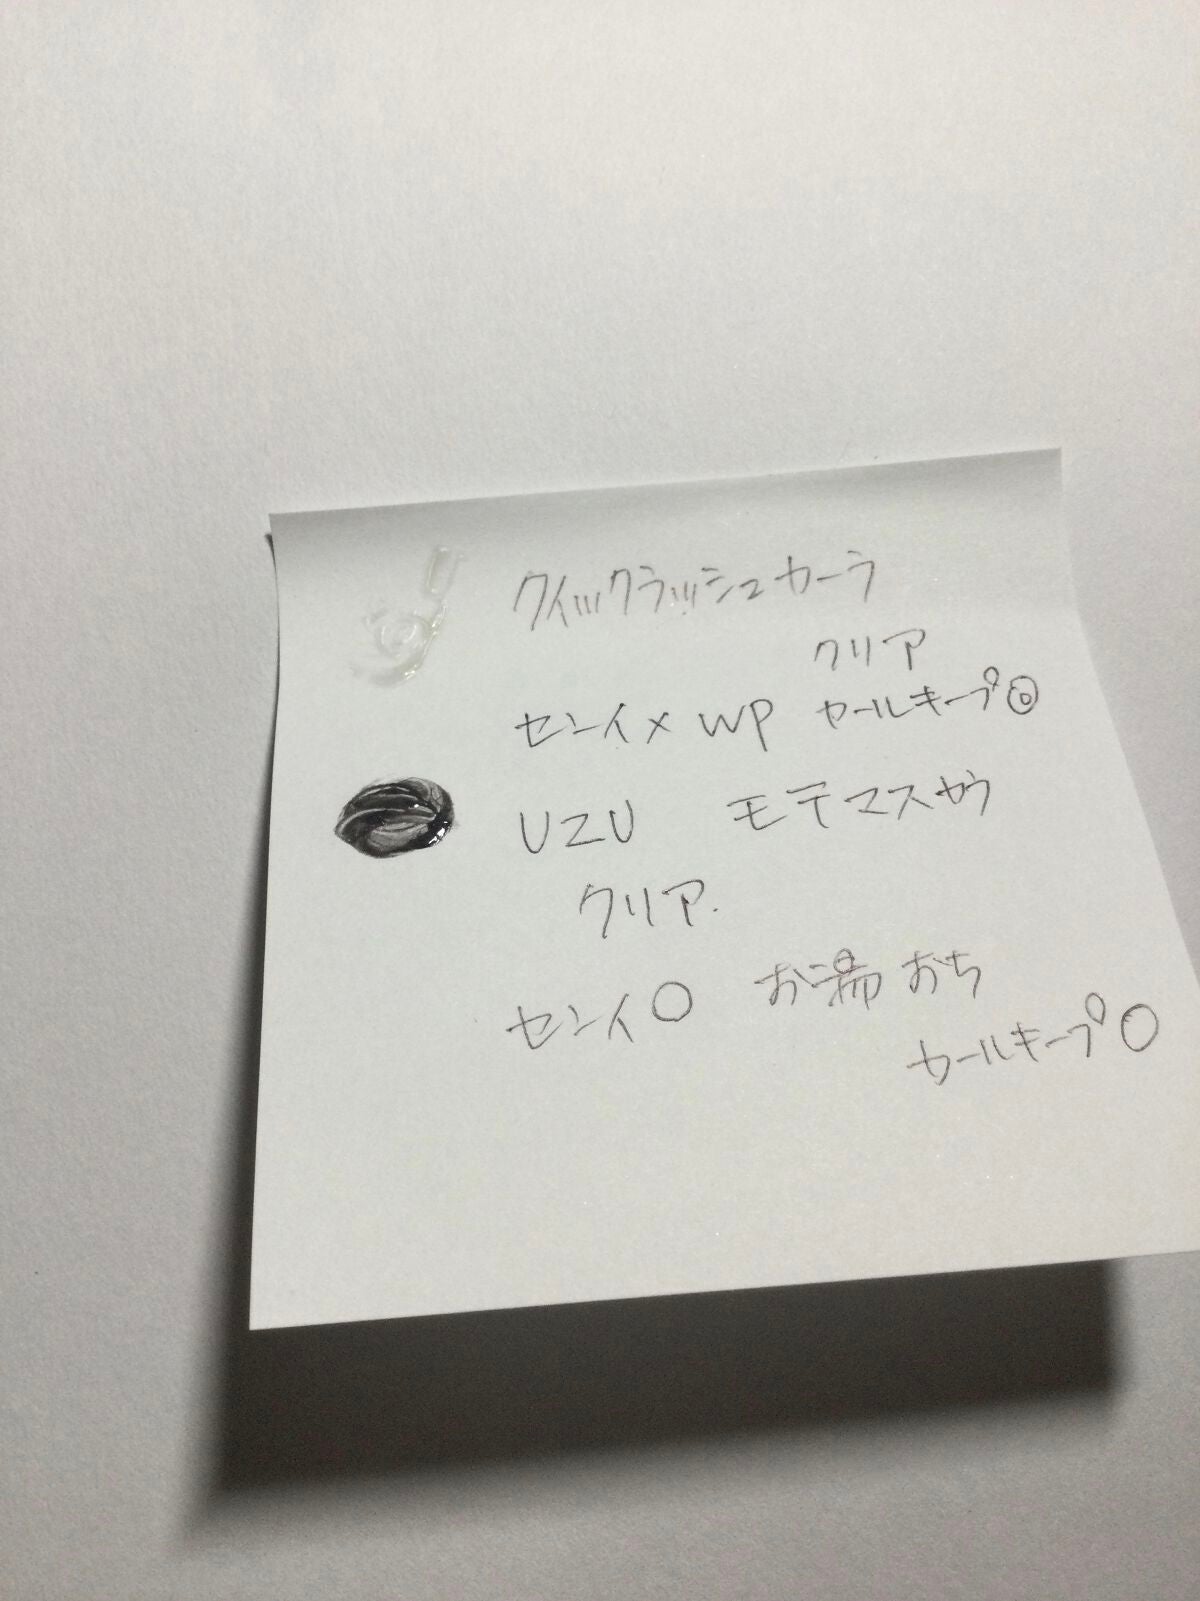 クイックラッシュカーラ
クリア
センイ× WP カールキープ◎
UZU モテマスカラ
クリア.
センイ○ お湯おち
カールキープ○